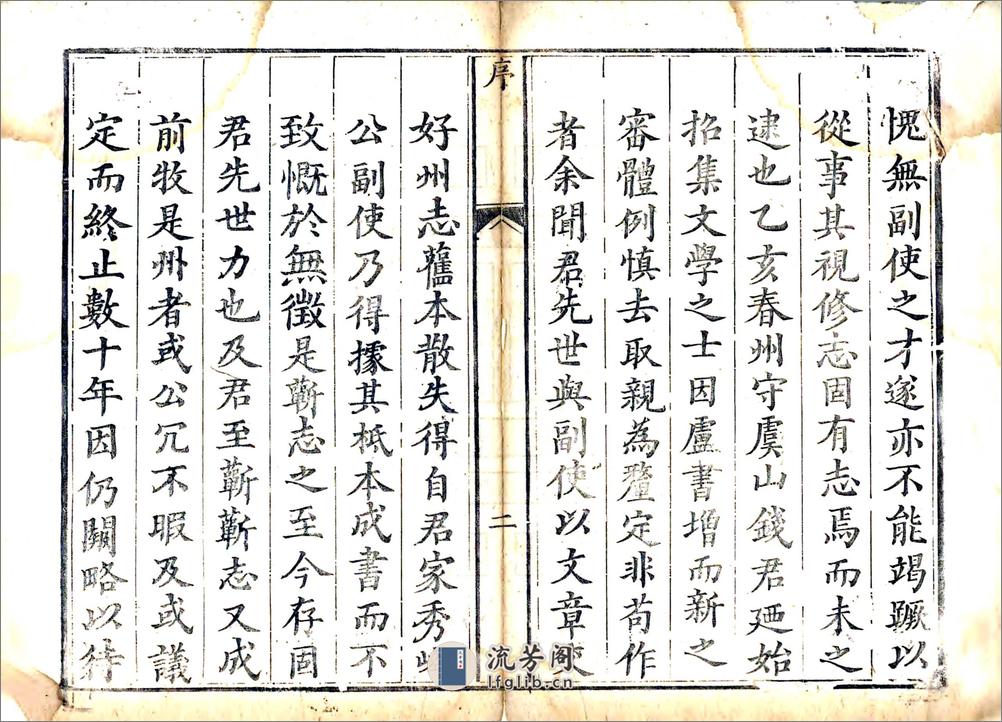 愧無副使之才遂亦不能竭蹶以
從事其視修志固有志焉而未之
逮也乙亥春州守虞山錢君廼始
招集文學之士因盧書增而新之
審體例慎去取親為釐定非苟作
者余聞君先世與副使以文章
序
二
好州志舊本散失得自君家秀
公副使乃得據其柢本成書而不
致慨於無徵是蘄志之至今存固
君先世力也及君至蘄蘄志又成
前牧是州者或公冗不暇及或議
定而終止數十年因仍闕略以待
流芳阁
lfglib.cn